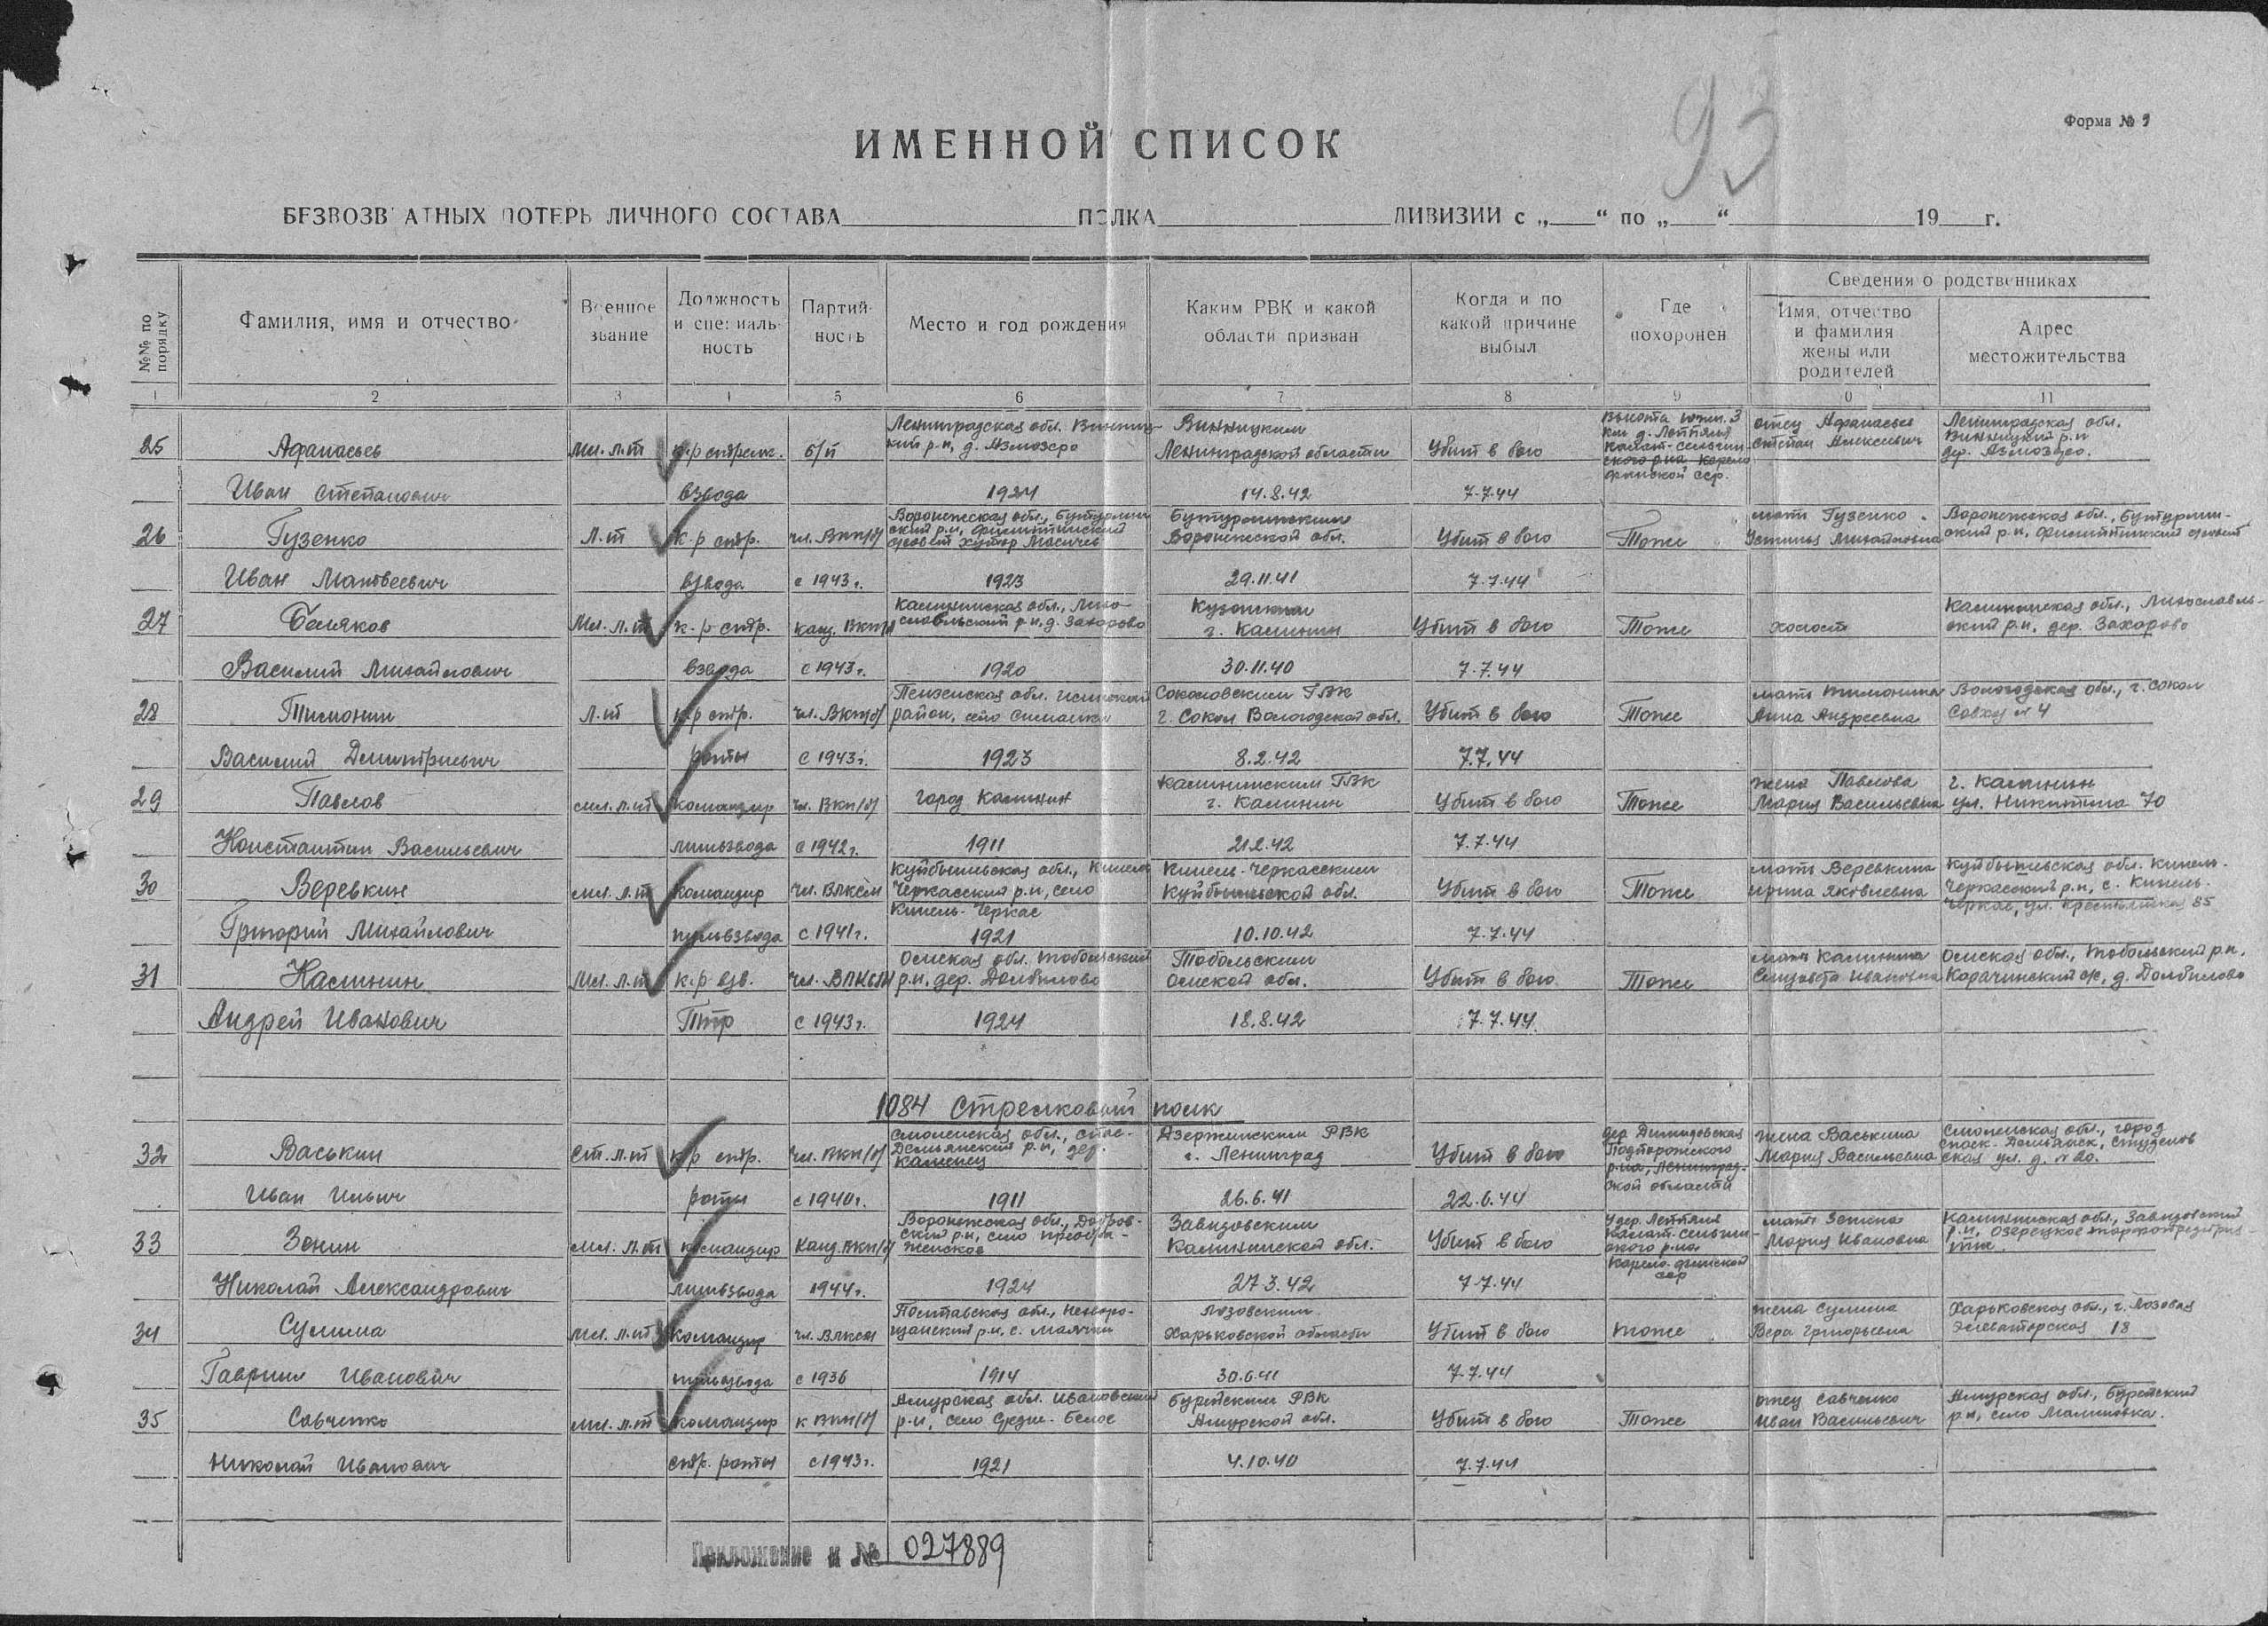 93
Форма № 2
ИМЕННОЙ СПИСОК
БЕЗВОЗВ АТНЫХ ПОТЕРЬ ЛИЧНОГО СОСТАВА ПОЛКА ДИВИЗИИ с „ “ по „ “ 19 г.
№№ по порядку
Фамилия, имя и отчество
Военное звание
Должность и специаль- ность
Партий- ность
Место и год рождения
Каким РВК и какой области призван
Когда и по какой причине выбыл
Где похоронен
Сведения о родственниках
Имя, отчество и фамилия жены или родителей
Адрес местожительства
1 2 3 4 5 6 7 8 9 10 11
25 Афанасьев Мл. л-т к-р стрелк. б/п Ленинградская обл. Винниц- кий р-н, д. Азмозеро Винницким Ленинградской области Убит в бою Высота южн. 3 км д. Леппяля отец Афанасьев Степан Алексеевич Ленинградская обл. Винницкий р-н дер. Азмозеро.
Иван Степанович взвода 1924 14.8.42 7.7.44
26 Гузенко Л-т к-р стр. чл. ВКП/б/ Воронежская обл., Бутурлин- ский р-н, хутор Бутурлинским Воронежской обл. Убит в бою Тоже мать Гузенко Устинья Михайловна Воронежская обл., Бутурлин- ский р-н,
Иван Матвеевич взвода с 1943 г. 1923 29.11.41 7.7.44
27 Беляков Мл. л-т к-р стр. канд. ВКП/б/ Калининская обл., Лихо- славльский р-н, д. Захарово г. Калинин Убит в бою Тоже холост Калининская обл., Лихославль- ский р-н, дер. Захарово
Василий Михайлович взвода с 1943 г. 1920 30.11.40 7.7.44
28 Тимонин Л-т к-р стр. чл. ВКП/б/ Пензенская обл. район, село Соколовским ГВК г. Сокол Вологодской обл. Убит в бою Тоже мать Тимонина Анна Андреевна Вологодская обл., г. Сокол Совхоз № 4
Василий Дмитриевич роты с 1943 г. 1923 8.2.42 7.7.44
29 Павлов мл. л-т командир чл. ВКП/б/ город Калинин Калининским ГВК г. Калинин Убит в бою Тоже жена Павлова Мария Васильевна г. Калинин ул. Никитина 70
Константин Васильевич пульвзвода с 1942 г. 1911 21.2.42 7.7.44
30 Веревкин мл. л-т командир чл. ВЛКСМ Куйбышевская обл., Кинель Черкасский р-н, село Кинель-Черкас Кинель-Черкасским Куйбышевской обл. Убит в бою Тоже мать Веревкина Ирина Яковлевна Куйбышевская обл. Кинель- Черкасский р-н, с. Кинель- Черкас, ул. Крестьянская 85
Григорий Михайлович пульвзвода с 1941 г. 1921 10.10.42 7.7.44
31 Калинин Мл. л-т к-р взв. чл. ВЛКСМ Омская обл. Тобольский р-н, дер. Долбилово Тобольским Омской обл. Убит в бою Тоже мать Калинина Елизавета Ивановна Омская обл., Тобольский р-н, Карачинский с/с, д. Долбилово
Андрей Иванович ПТР с 1943 г. 1924 18.8.42 7.7.44
1084 Стрелковый полк
32 Васькин Ст. л-т к-р стр. чл. ВКП/б/ Смоленская обл., Спас- Демьянский р-н, дер. Каменец Дзержинским РВК г. Ленинград Убит в бою дер. Демидовская Подпорожского р-на, Ленинград- ской области жена Васькина Мария Васильевна Смоленская обл., город Спас-Демьянск,
Иван Ильич роты с 1940 г. 1911 26.6.41 22.6.44
33 Зонин мл. л-т командир Канд. ВКП/б/ Воронежская обл., Добров- ский р-н, село Преобра- женское Завидовским Калининской обл. Убит в бою У дер. Леппяля Карело-финской сср мать Зонина Мария Ивановна Калининская обл., Завидовский р-н, Озерецкое торфопредприя- тие.
Николай Александрович пульвзвода 1944 г. 1924 27.3.42 7.7.44
34 Сулима мл. л-т командир чл. ВЛКСМ Полтавская обл., Нехворо- щанский р-н, с. Маячки Лозовским Харьковской области Убит в бою тоже жена Сулима Вера Григорьевна Харьковская обл., г. Лозовая Элеваторская 18
Гавриил Иванович пульвзвода с 1936 1914 30.6.41 7.7.44
35 Савченко мл. л-т командир к ВКП/б/ Амурская обл. Ивановский р-н, село Средне-Белое Бурейским РВК Амурской обл. Убит в бою Тоже отец Савченко Иван Васильевич Амурская обл., Бурейский р-н, село Малиновка.
Николай Иванович стр. роты с 1943 г. 1921 4.10.40 7.7.44
Приложение и № 027889